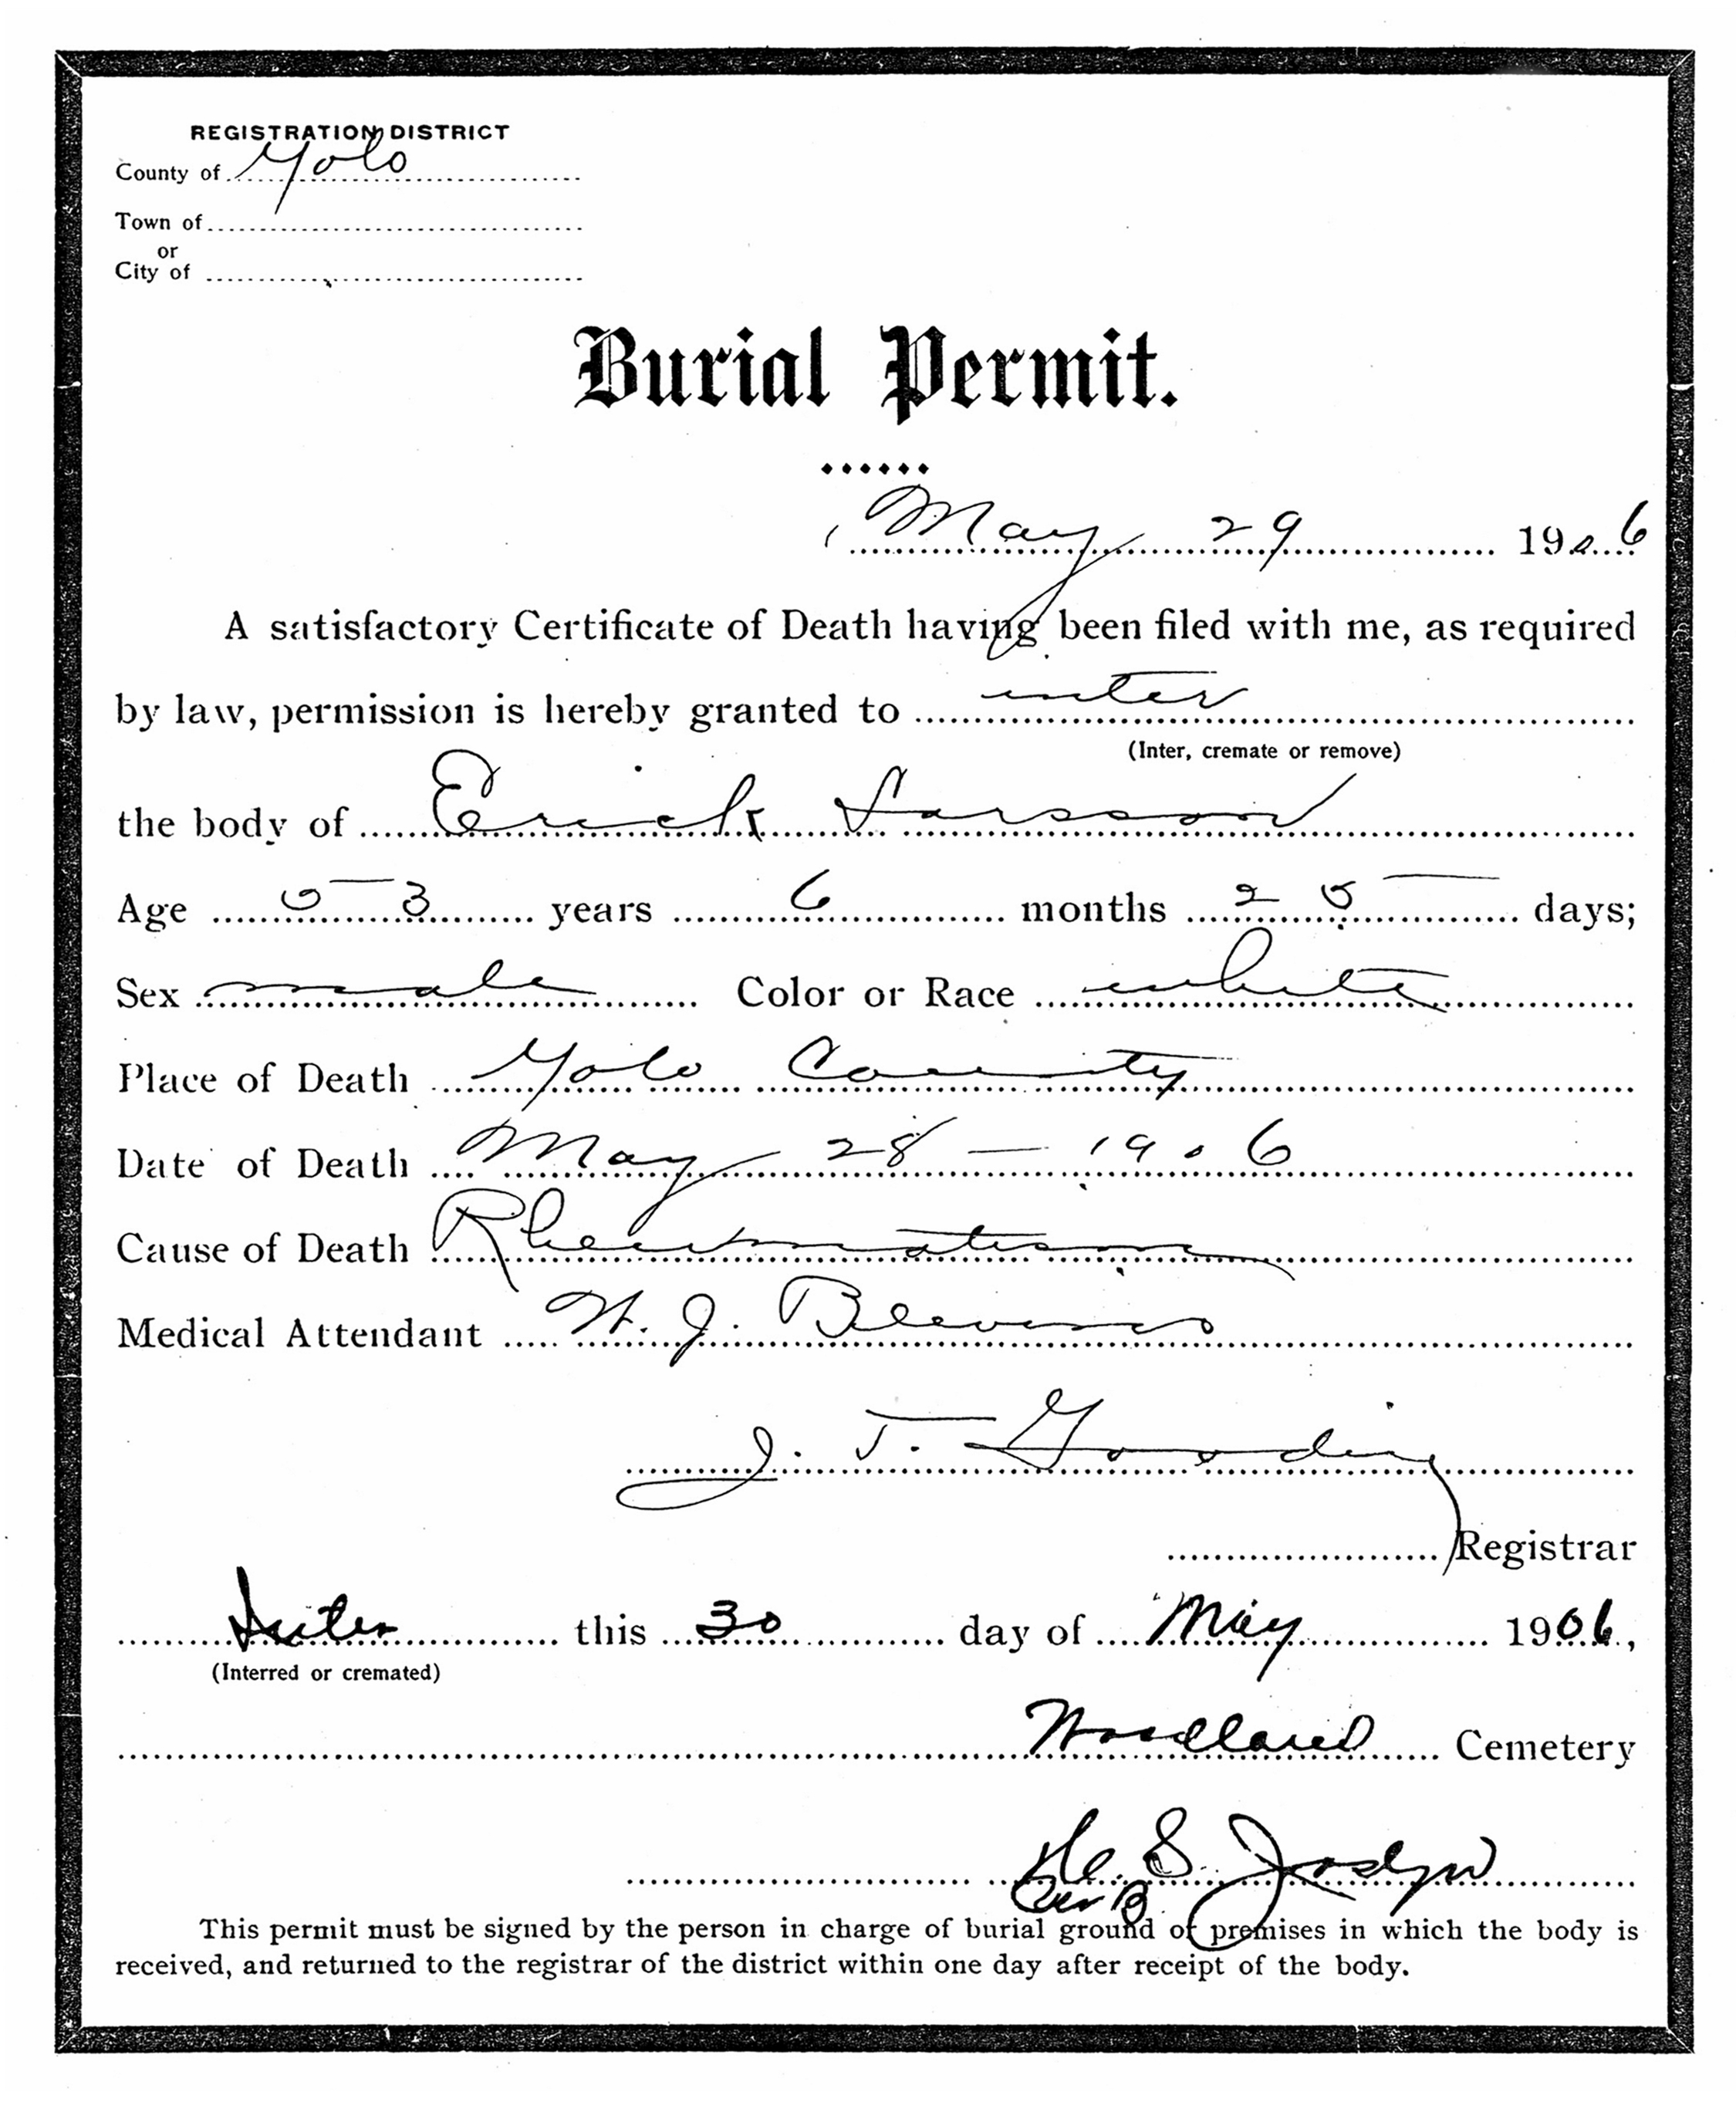 REGISTRATION DISTRICT
County of Yolo
Town of
or
City of
Burial Permit.
May 29 1906
A satisfactory Certificate of Death having been filed with me, as required
by law, permission is hereby granted to inter
(Inter, cremate or remove)
the body of Erick Larsson
Age 53 years 6 months 25 days;
Sex male Color or Race white
Place of Death Yolo County
Date of Death May 28 — 1906
Cause of Death Rheumatism
Medical Attendant W. J. Blevins
J. T. Gooding
Registrar
Inter this 30 day of May 1906,
(Interred or cremated)
Woodland Cemetery
S. Joslyn
This permit must be signed by the person in charge of burial ground or premises in which the body is
received, and returned to the registrar of the district within one day after receipt of the body.